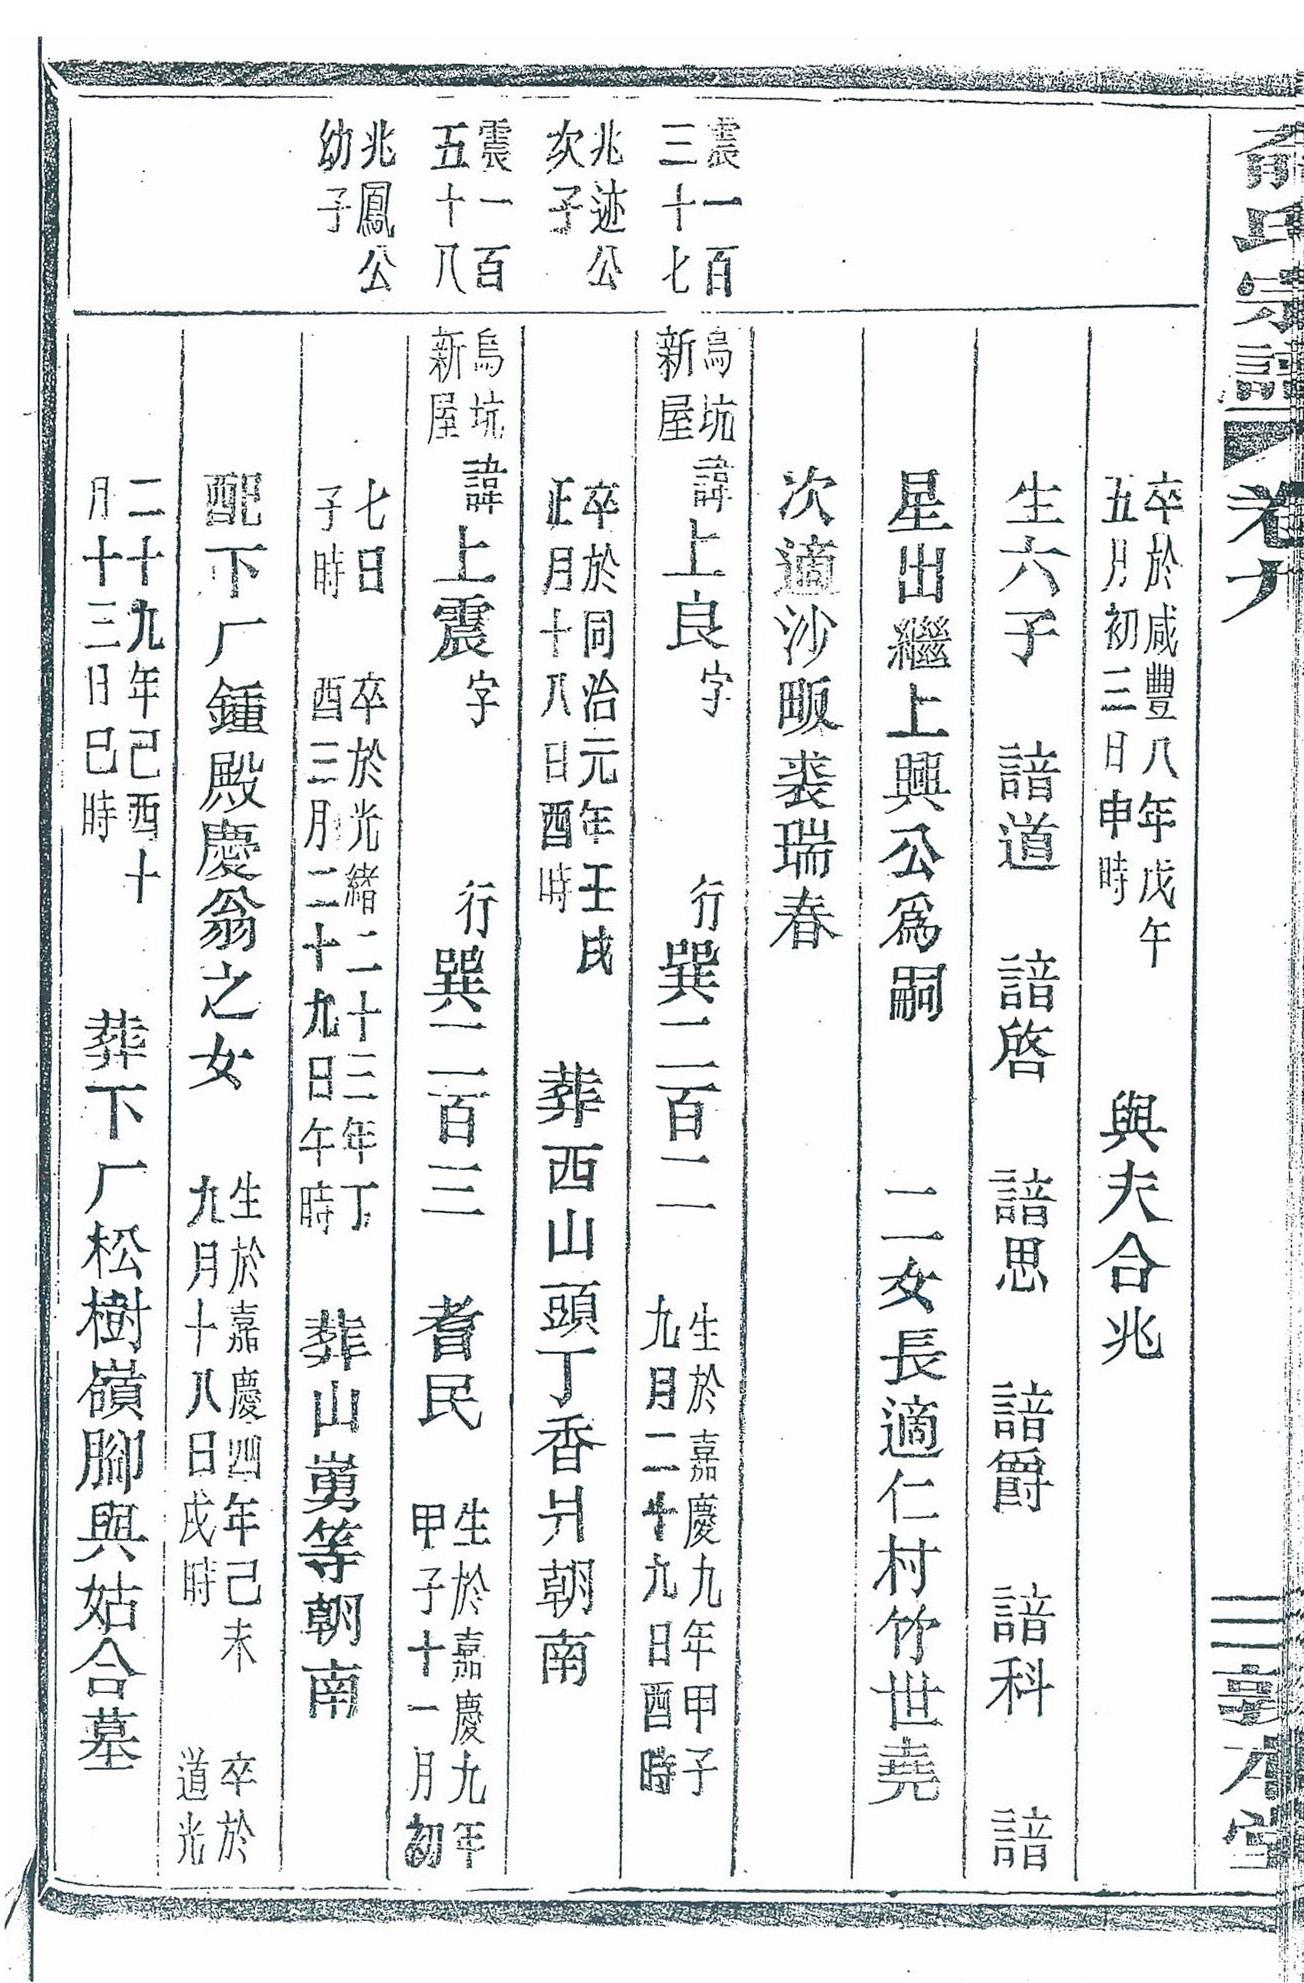 俞氏宗譜 卷九 三 敦本堂
卒於咸豐八年戊午
五月初三日申時
與夫合兆
生六子 諳道 諳啓 諳思 諳爵 諳科 諳
星出繼上興公爲嗣 二女長適仁村竹世堯
次適沙畈裘瑞春
震一百
三十七
烏坑
新屋
諱上良字 行巽二百二
生於嘉慶九年甲子
九月二十九日酉時
兆迹公
次子
卒於同治元年壬戌
正月十八日酉時
葬西山頭丁香爿朝南
震一百
五十八
烏坑
新屋
諱上震字 行巽二百三 耆民
生於嘉慶九年
甲子十一月初
兆鳳公
幼子
七日
子時
卒於光緒二十三年丁
酉三月二十九日午時
葬山嵑等朝南
配下厂鍾殿慶翁之女
生於嘉慶四年己未
九月十八日戌時
卒於
道光
二十九年己酉十
月十三日巳時
葬下厂松樹嶺腳與姑合墓